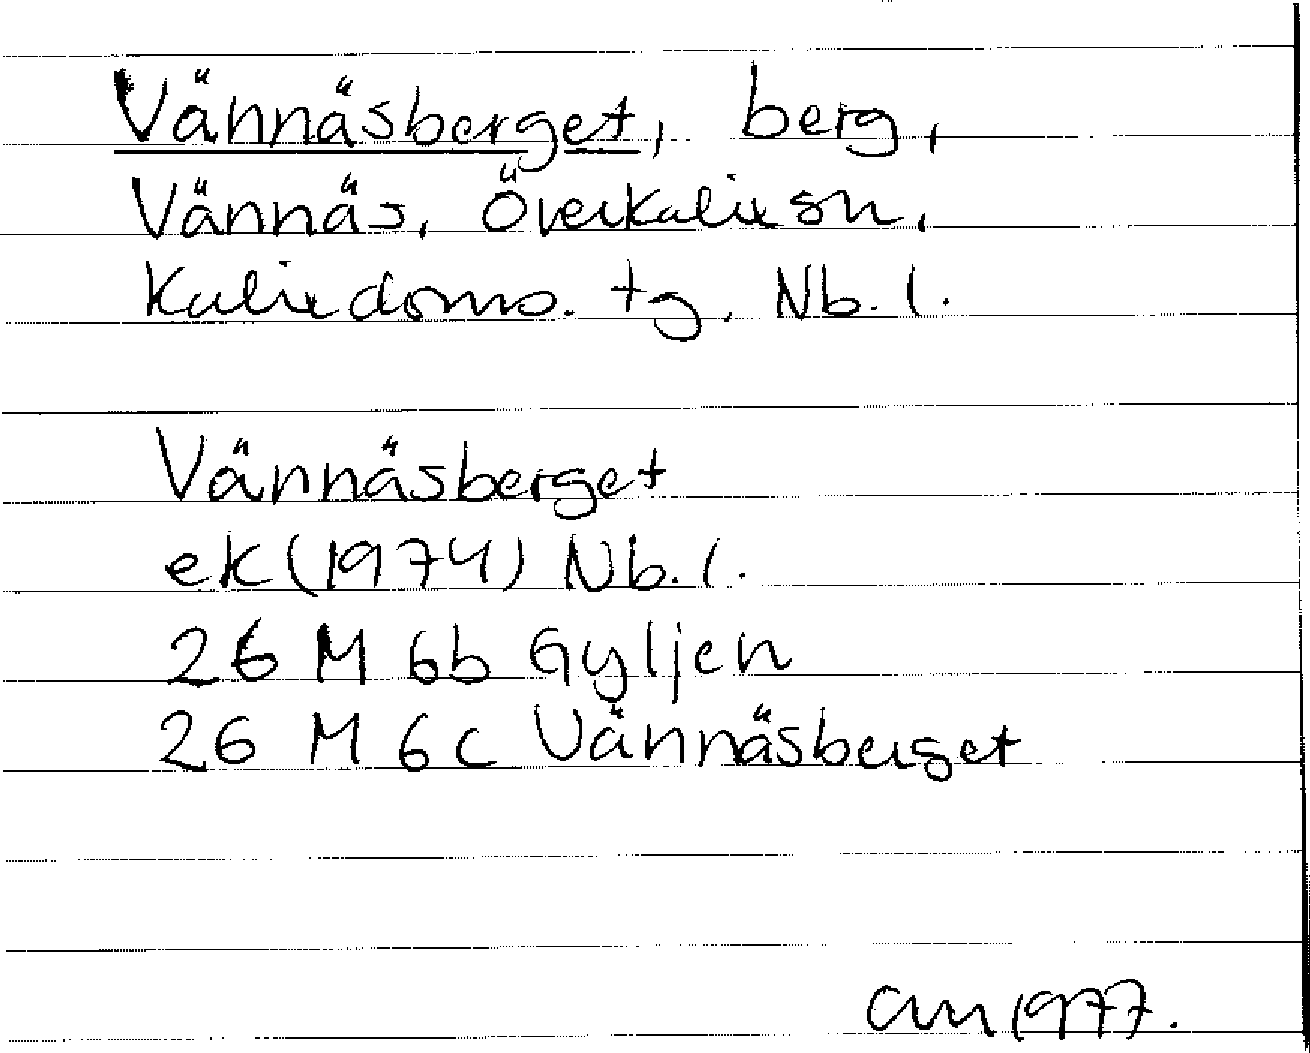 Vännäsberget, berg,
Vännäs, Överkalix sn,
Kalix doms. tg, Nb. l.
Vännäsberget
ek (1974) Nb. l.
26 M 6b Gyljen
26 M 6c Vännäsberget
am 1977.